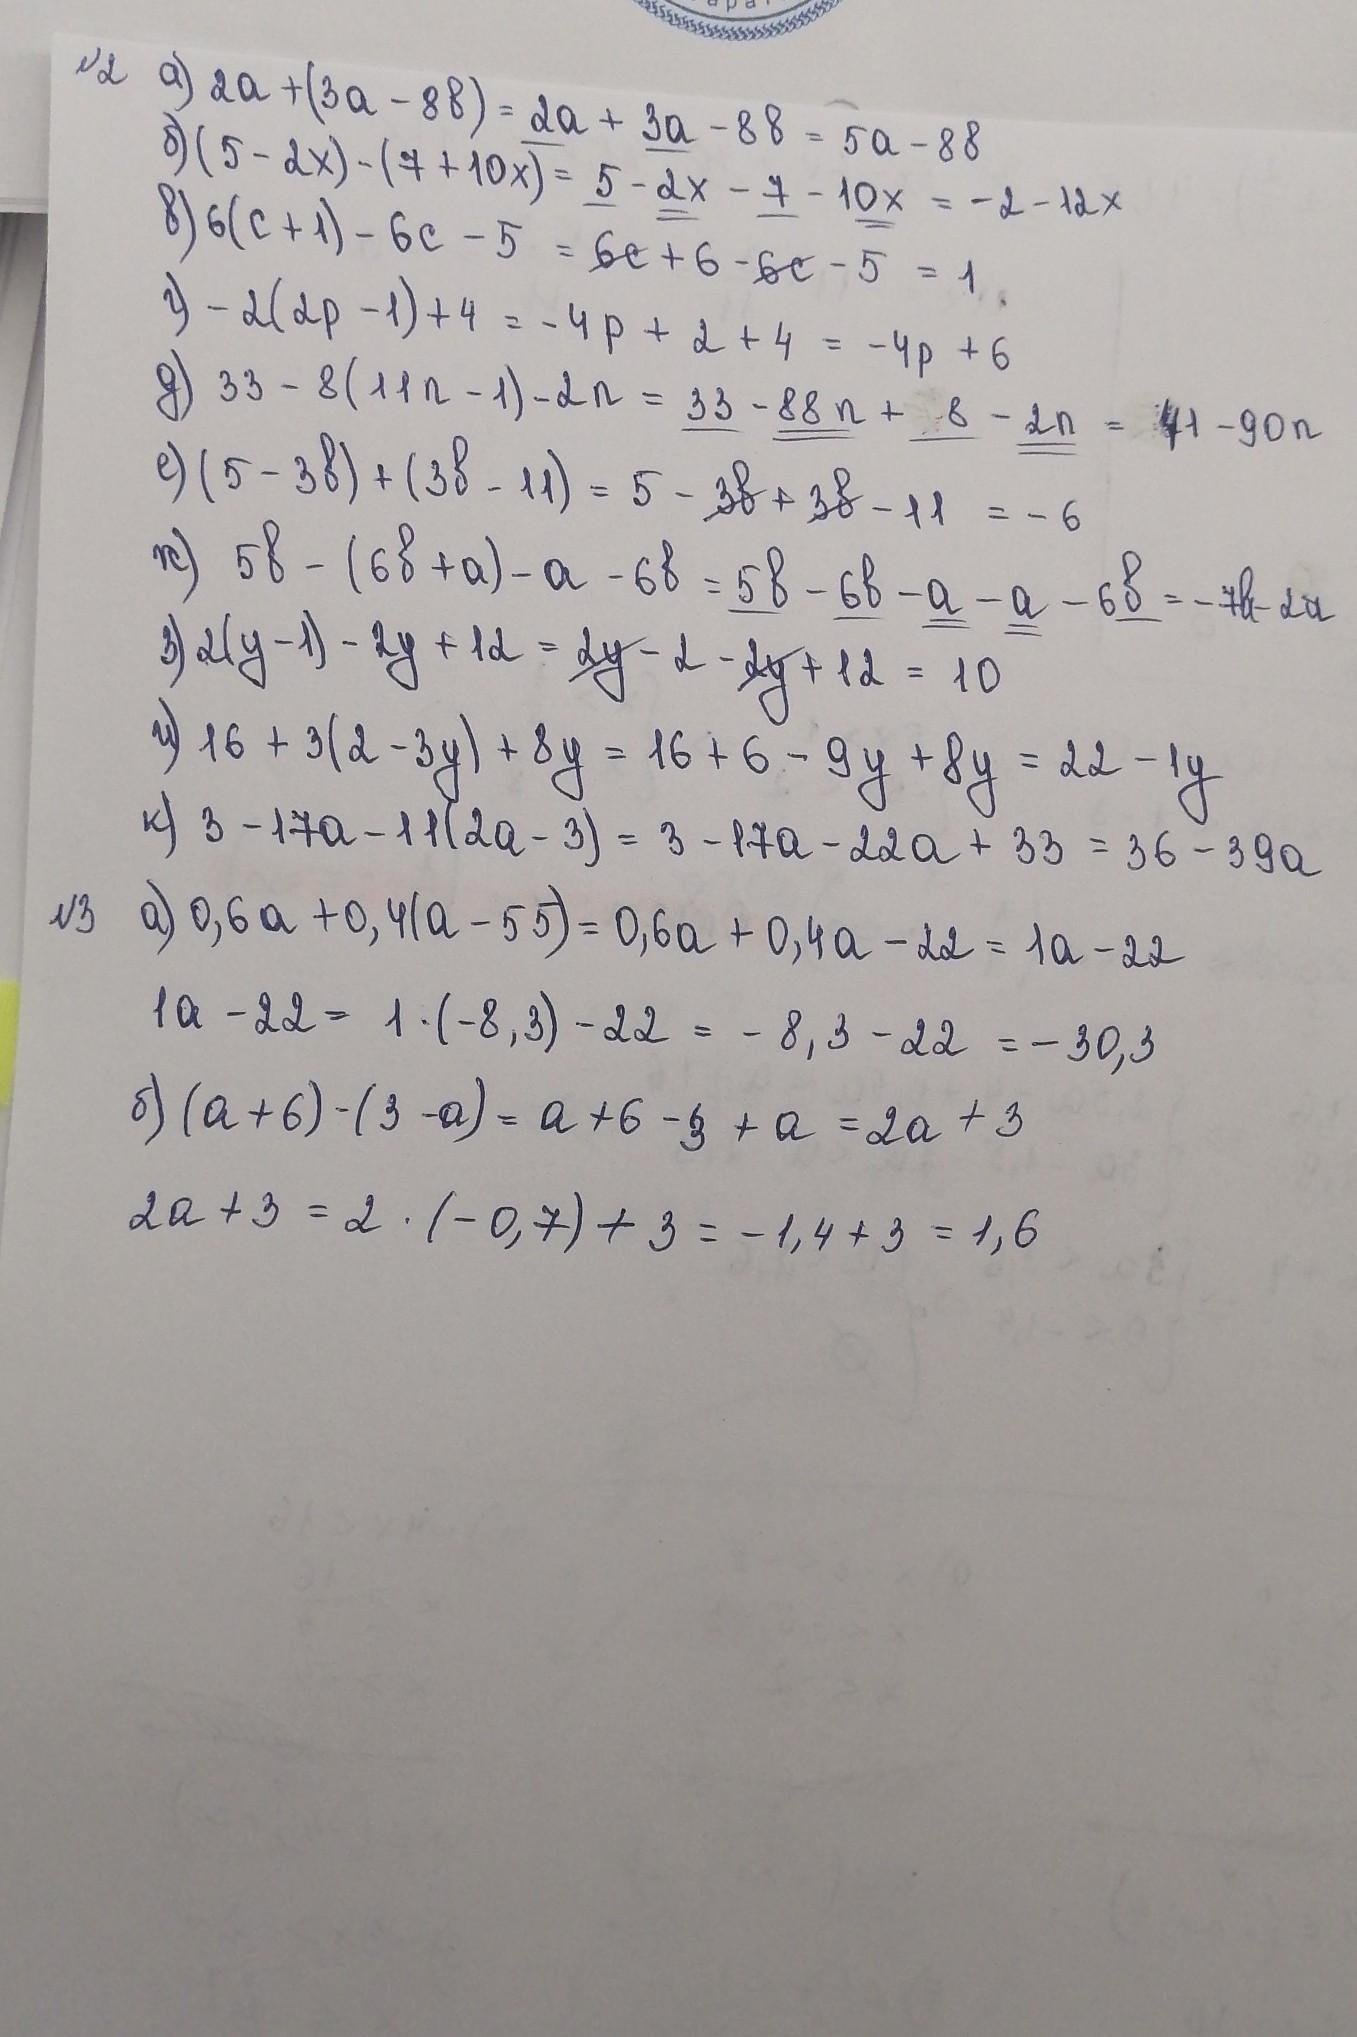 №2 а) 2a + (3a - 8b) = 2a + 3a - 8b = 5a - 8b
б) (5 - 2x) - (7 + 10x) = 5 - 2x - 7 - 10x = -2 - 12x
в) 6(c + 1) - 6c - 5 = 6c + 6 - 6c - 5 = 1
г) -2(2p - 1) + 4 = -4p + 2 + 4 = -4p + 6
д) 33 - 8(11n - 1) - 2n = 33 - 88n + 8 - 2n = 41 - 90n
е) (5 - 3b) + (3b - 11) = 5 - 3b + 3b - 11 = -6
ж) 5b - (6b + a) - a - 6b = 5b - 6b - a - a - 6b = -7b - 2a
з) 2(y - 1) - 2y + 12 = 2y - 2 - 2y + 12 = 10
и) 16 + 3(2 - 3y) + 8y = 16 + 6 - 9y + 8y = 22 - 1y
к) 3 - 17a - 11(2a - 3) = 3 - 17a - 22a + 33 = 36 - 39a
№3 а) 0,6a + 0,4(a - 55) = 0,6a + 0,4a - 22 = 1a - 22
1a - 22 = 1 · (-8,3) - 22 = -8,3 - 22 = -30,3
б) (a + 6) - (3 - a) = a + 6 - 3 + a = 2a + 3
2a + 3 = 2 · (-0,7) + 3 = -1,4 + 3 = 1,6